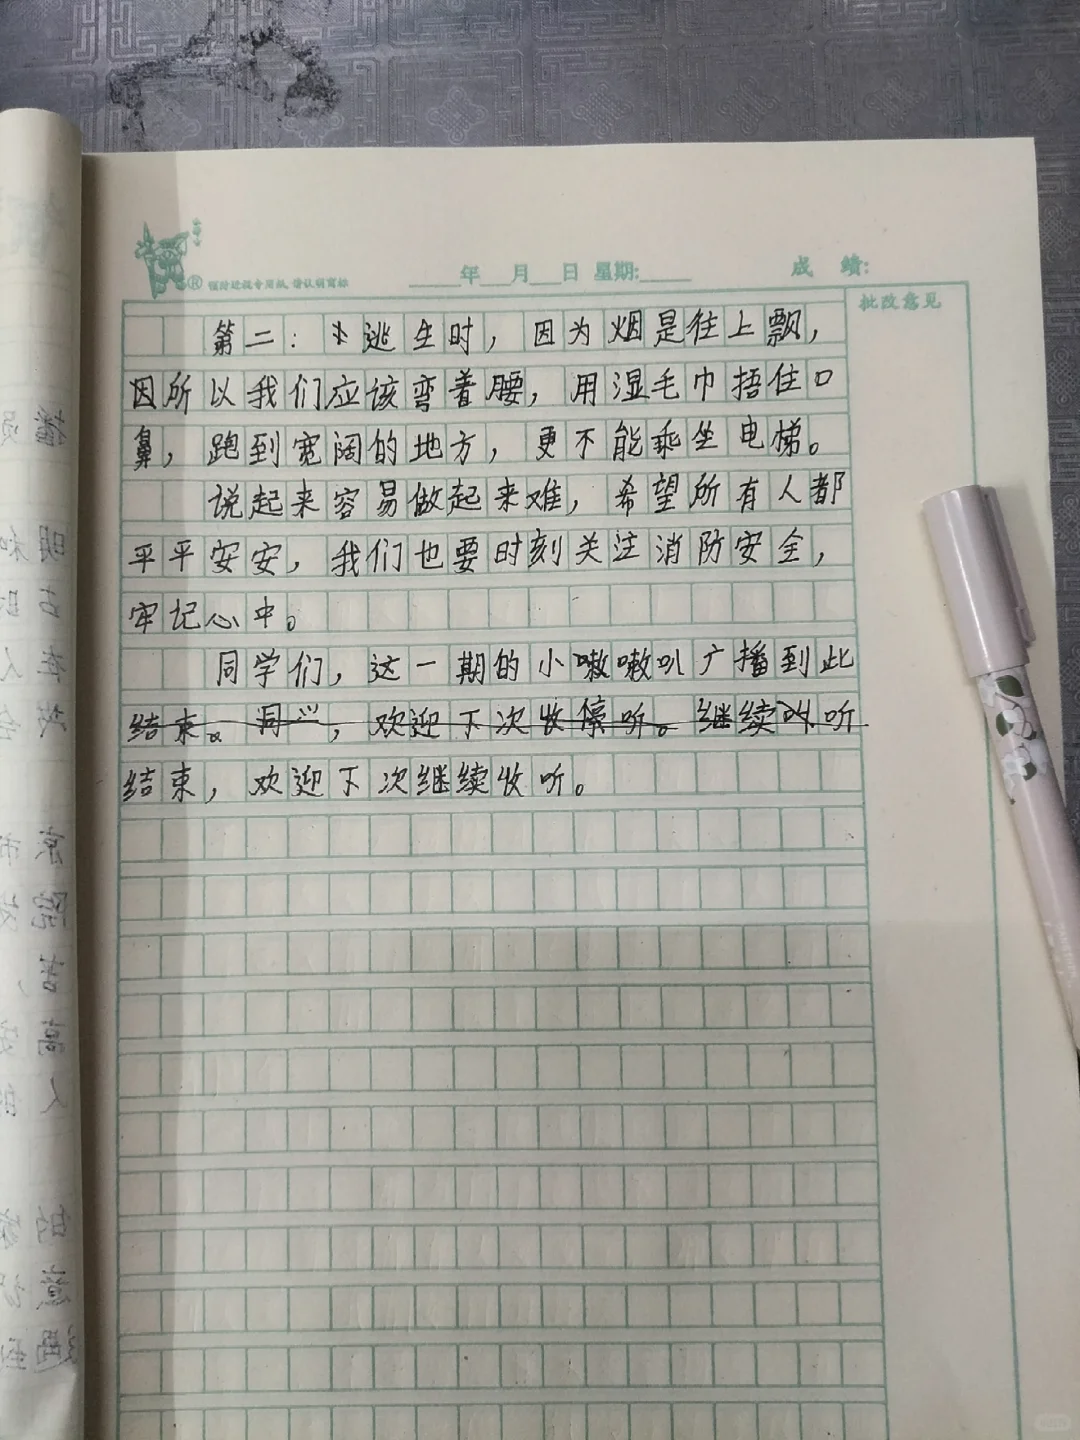 年 月 日 星期:
成 绩:
批改意见
第二：逃生时，因为烟是往上飘，
因所以我们应该弯着腰，用湿毛巾捂住口
鼻，跑到宽阔的地方，更不能乘坐电梯。
说起来容易做起来难，希望所有人都
平平安安，我们也要时刻关注消防安全，
牢记心中。
同学们，这一期的小嗷嗷叭广播到此
结束。同，欢迎下次收停听。继续听
结束，欢迎下次继续收听。